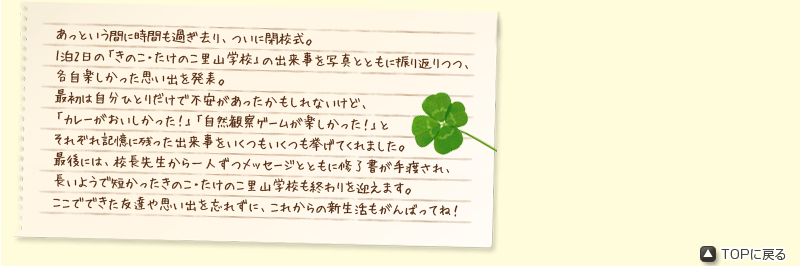 あっという間に時間も過ぎ去り、ついに閉校式。
1泊2日の「きのこ・たけのこ里山学校」の出来事を写真とともに振り返りつつ、
各自楽しかった思い出を発表。
最初は自分ひとりだけで不安があったかもしれないけど、
「カレーがおいしかった!」「自然観察ゲームが楽しかった!」と
それぞれ記憶に残った出来事をいくつもいくつも挙げてくれました。
最後には、校長先生から一人ずつメッセージとともに修了書が手渡され、
長いようで短かったきのこ・たけのこ里山学校も終わりを迎えます。
ここでできた友達や思い出を忘れずに、これからの新生活もがんばってね!
TOPに戻る